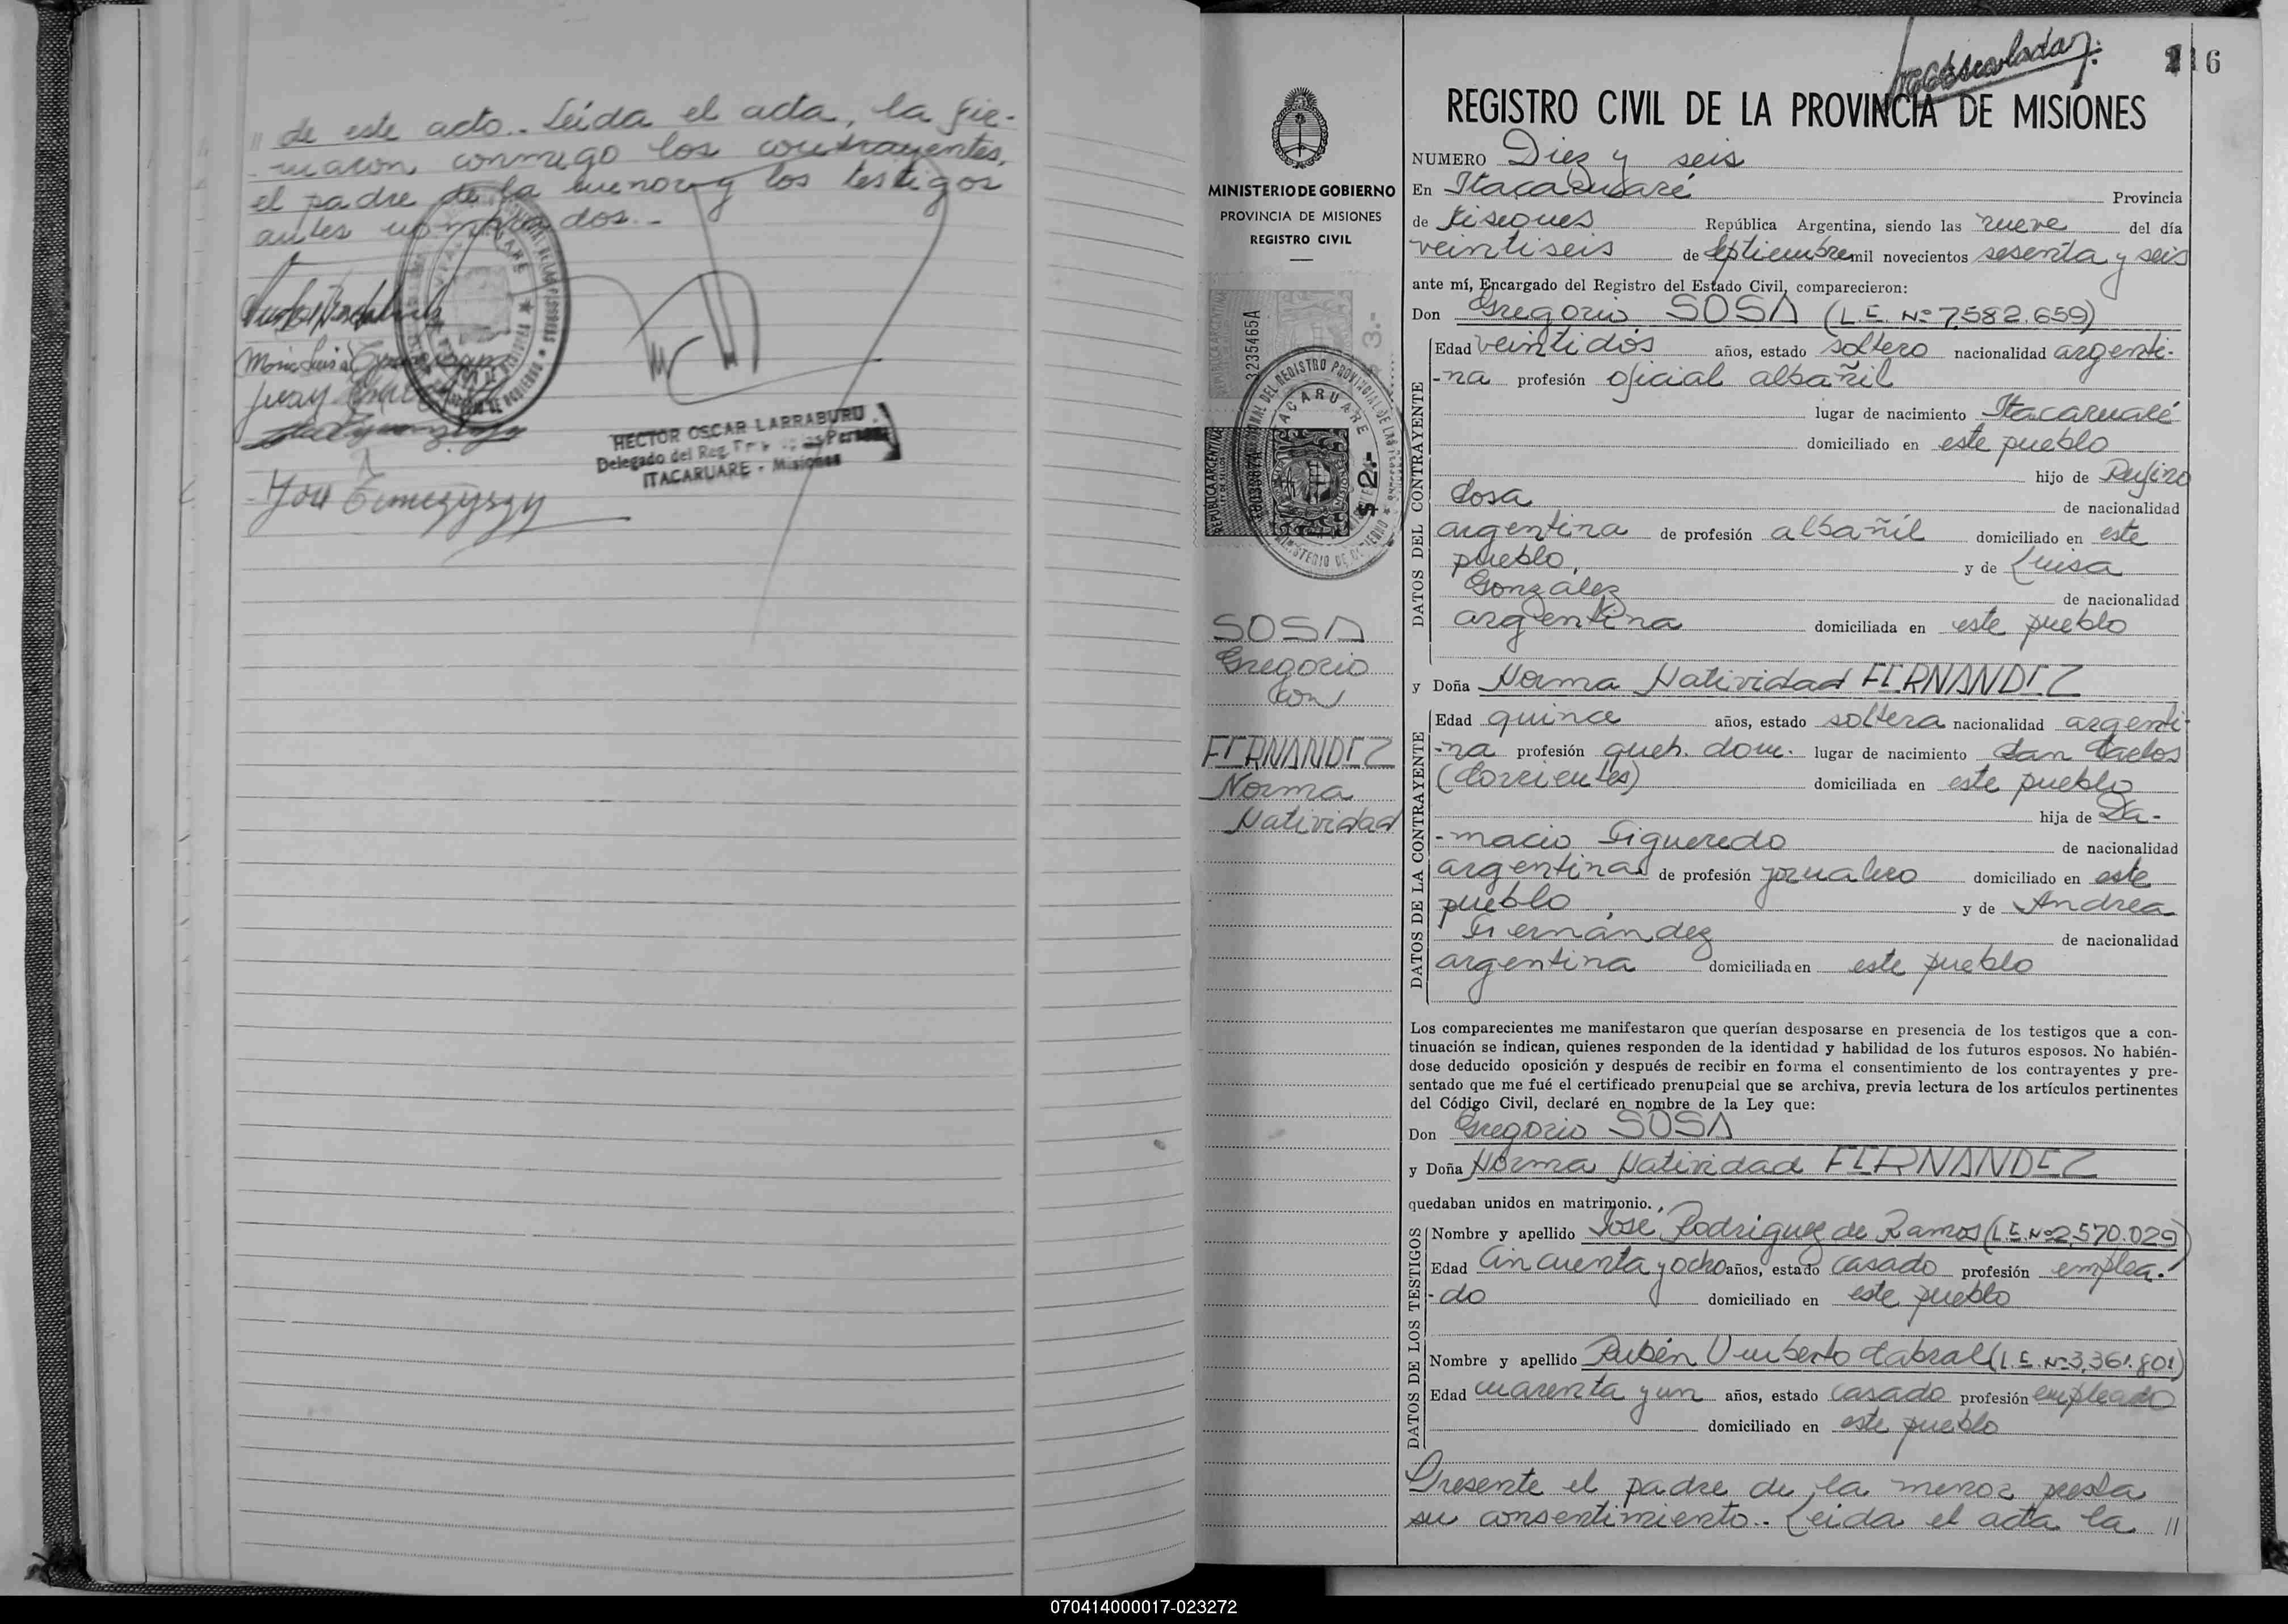 " de este acto.. Leída el acta, la fir-
-maron conmigo los contrayentes,
el padre de la menor y los testigos
antes nombrados.-
HECTOR OSCAR LARRABURU
Delegado del Reg.
ITACARUARE - Misiones
116
REGISTRO CIVIL DE LA PROVINCIA DE MISIONES
MINISTERIO DE GOBIERNO
PROVINCIA DE MISIONES
REGISTRO CIVIL
3235465A
REPUBLICA ARGENTINA
$ 2.-
ITACARUARE
SOSA
Gregorio
Con
FERNANDEZ
Norma
Natividad
NUMERO Diez y seis
En Itacaruaré Provincia
de Misiones República Argentina, siendo las nueve del día
veintiseis de septiembre mil novecientos sesenta y seis
ante mí, Encargado del Registro del Estado Civil, comparecieron:
Don Gregorio SOSA (L.E. Nº 7.582.659)
DATOS DEL CONTRAYENTE
Edad veintidós años, estado soltero nacionalidad argenti-
-na profesión oficial albañil
lugar de nacimiento Itacaruaré
domiciliado en este pueblo
hijo de Rufino
Sosa de nacionalidad
argentina de profesión albañil domiciliado en este
pueblo, y de Luisa
González de nacionalidad
argentina domiciliada en este pueblo
y Doña Norma Natividad FERNANDEZ
DATOS DE LA CONTRAYENTE
Edad quince años, estado soltera nacionalidad argenti-
-na profesión queh. dom. lugar de nacimiento San Carlos
(Corrientes) domiciliada en este pueblo
hija de Da-
-macio Figueredo de nacionalidad
argentina de profesión jornalero domiciliado en este
pueblo, y de Andrea
Fernández de nacionalidad
argentina domiciliada en este pueblo
Los comparecientes me manifestaron que querían desposarse en presencia de los testigos que a con-
tinuación se indican, quienes responden de la identidad y habilidad de los futuros esposos. No habién-
dose deducido oposición y después de recibir en forma el consentimiento de los contrayentes y pre-
sentado que me fué el certificado prenupcial que se archiva, previa lectura de los artículos pertinentes
del Código Civil, declaré en nombre de la Ley que:
Don Gregorio SOSA
y Doña Norma Natividad FERNANDEZ
quedaban unidos en matrimonio.
DATOS DE LOS TESTIGOS
Nombre y apellido José Rodriguez de Ramos (L.E. Nº 2.570.029)
Edad Cincuenta y ocho años, estado casado profesión emplea-
-do domiciliado en este pueblo
Nombre y apellido Rubén Umberto Cabral (L.E. Nº 3.361.801)
Edad cuarenta y un años, estado casado profesión empleado
domiciliado en este pueblo
Presente el padre de la menor presta
su consentimiento.. Leída el acta la //
070414000017-023272